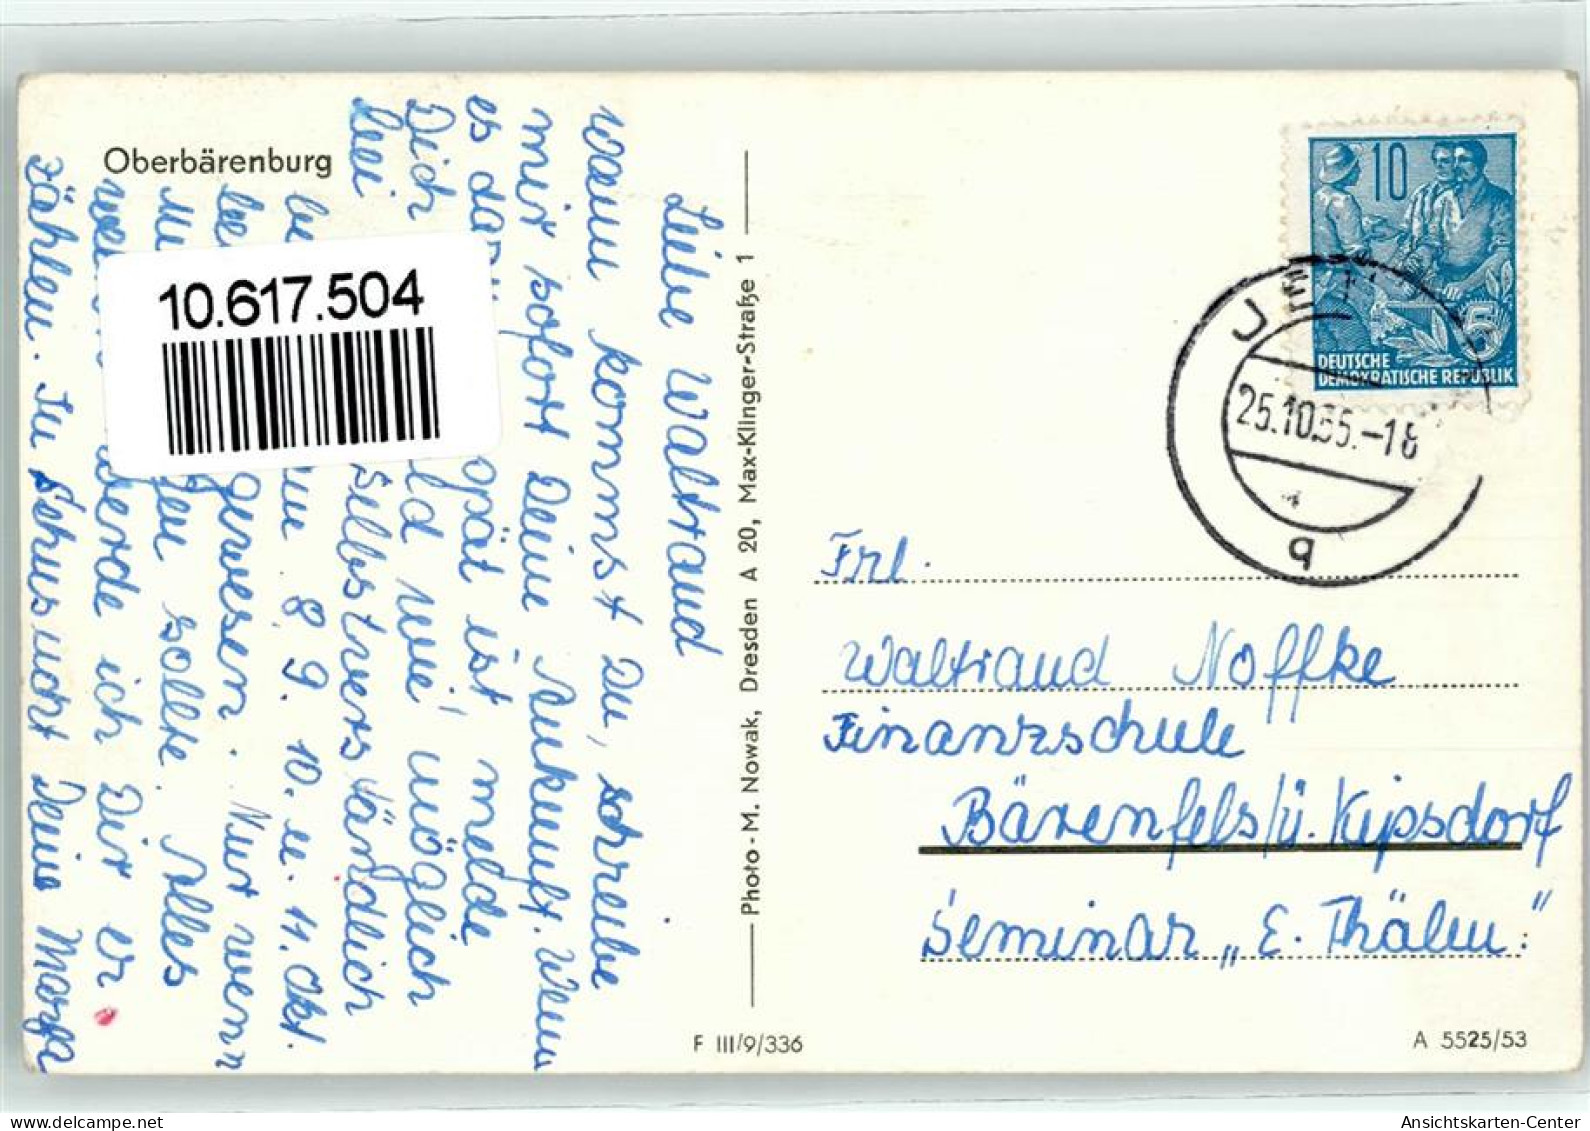 Oberbärenburg
10.617.504
Liebe Waltraud
wann kommst Du, schreibe
mir sofort Deine Ankunft. Wenn
es dazu spät ist, melde
Dich wie möglich
bei selbstverständlich
8. 9. 10. u. 11. Okt.
gewesen. Nur wenn
sollte. Alles
werde ich Dir er
zählen. In Sehnsucht Deine
Photo-M. Nowak, Dresden A 20, Max-Klinger-Straße 1
10
5
DEUTSCHE
DEMOKRATISCHE REPUBLIK
25.10.55.-18
q
Frl.
Waltraud Noffke
Finanzschule
Bärenfels/ü. Kipsdorf
Seminar „E. Thälm."
F III/9/336
A 5525/53
Ansichtskarten-Center